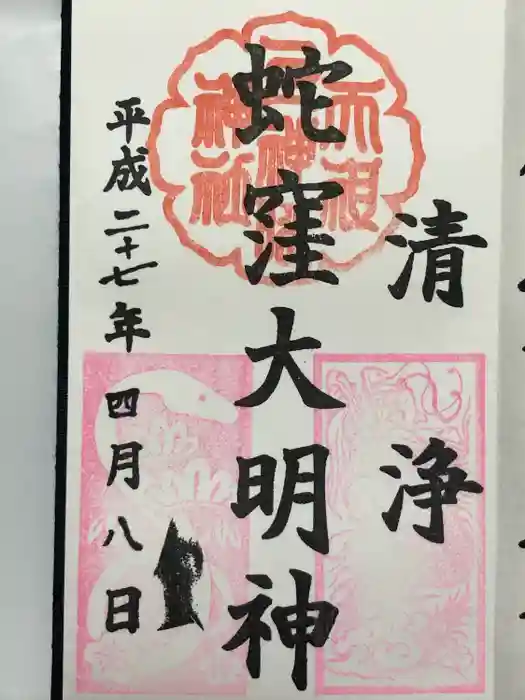 清浄
蛇窪大明神
平成二十七年四月八日